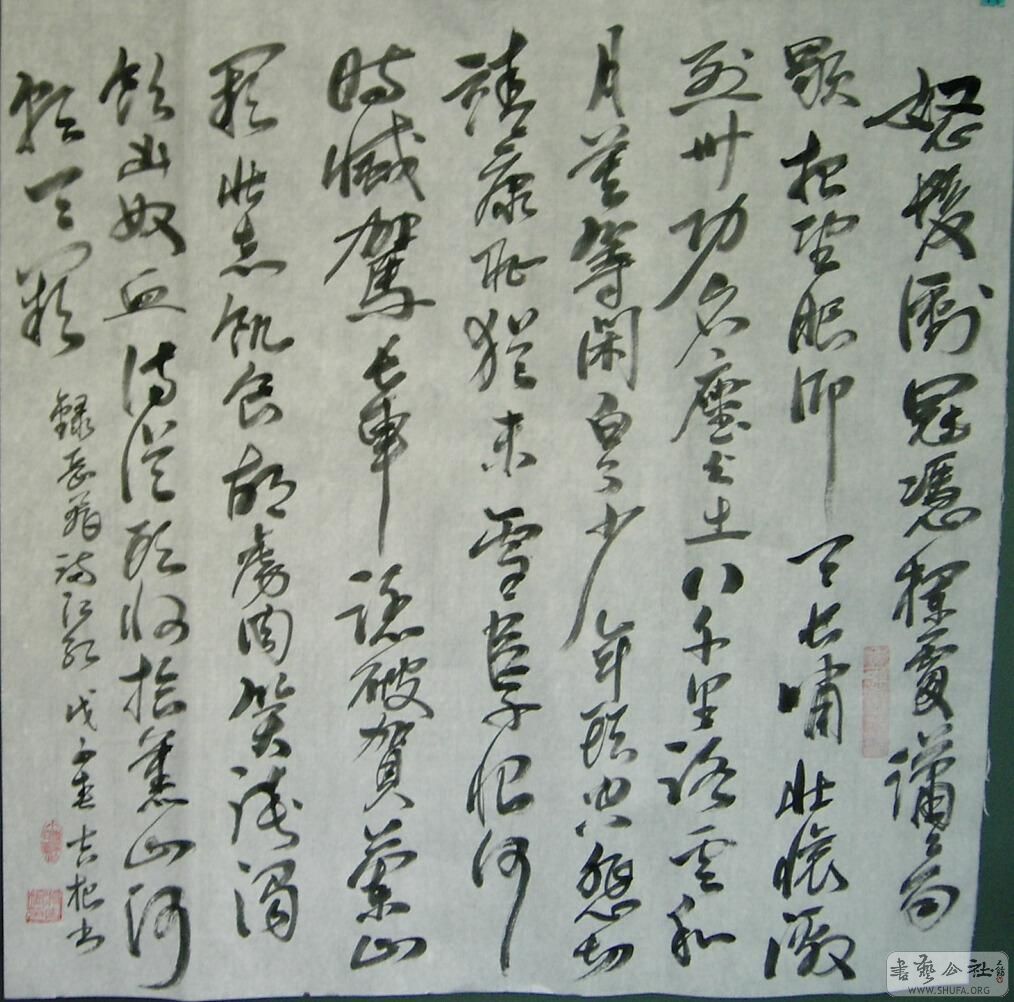 怒髮衝冠憑欄處瀟瀟雨
歇抬望眼仰天長嘯壯懷激
烈卅功名塵与土八千里路雲和
月莫等闲白了少年頭空悲切
靖康恥猶未雪臣子恨何
時憾駕長車踏破賀蘭山
闕壯志飢食胡虜肉笑談渴
飲匈奴血待從頭收拾舊山河
朝天闕
錄岳翁滿江紅 戊子 吉根书
書藝公社
WWW.SHUFA.ORG